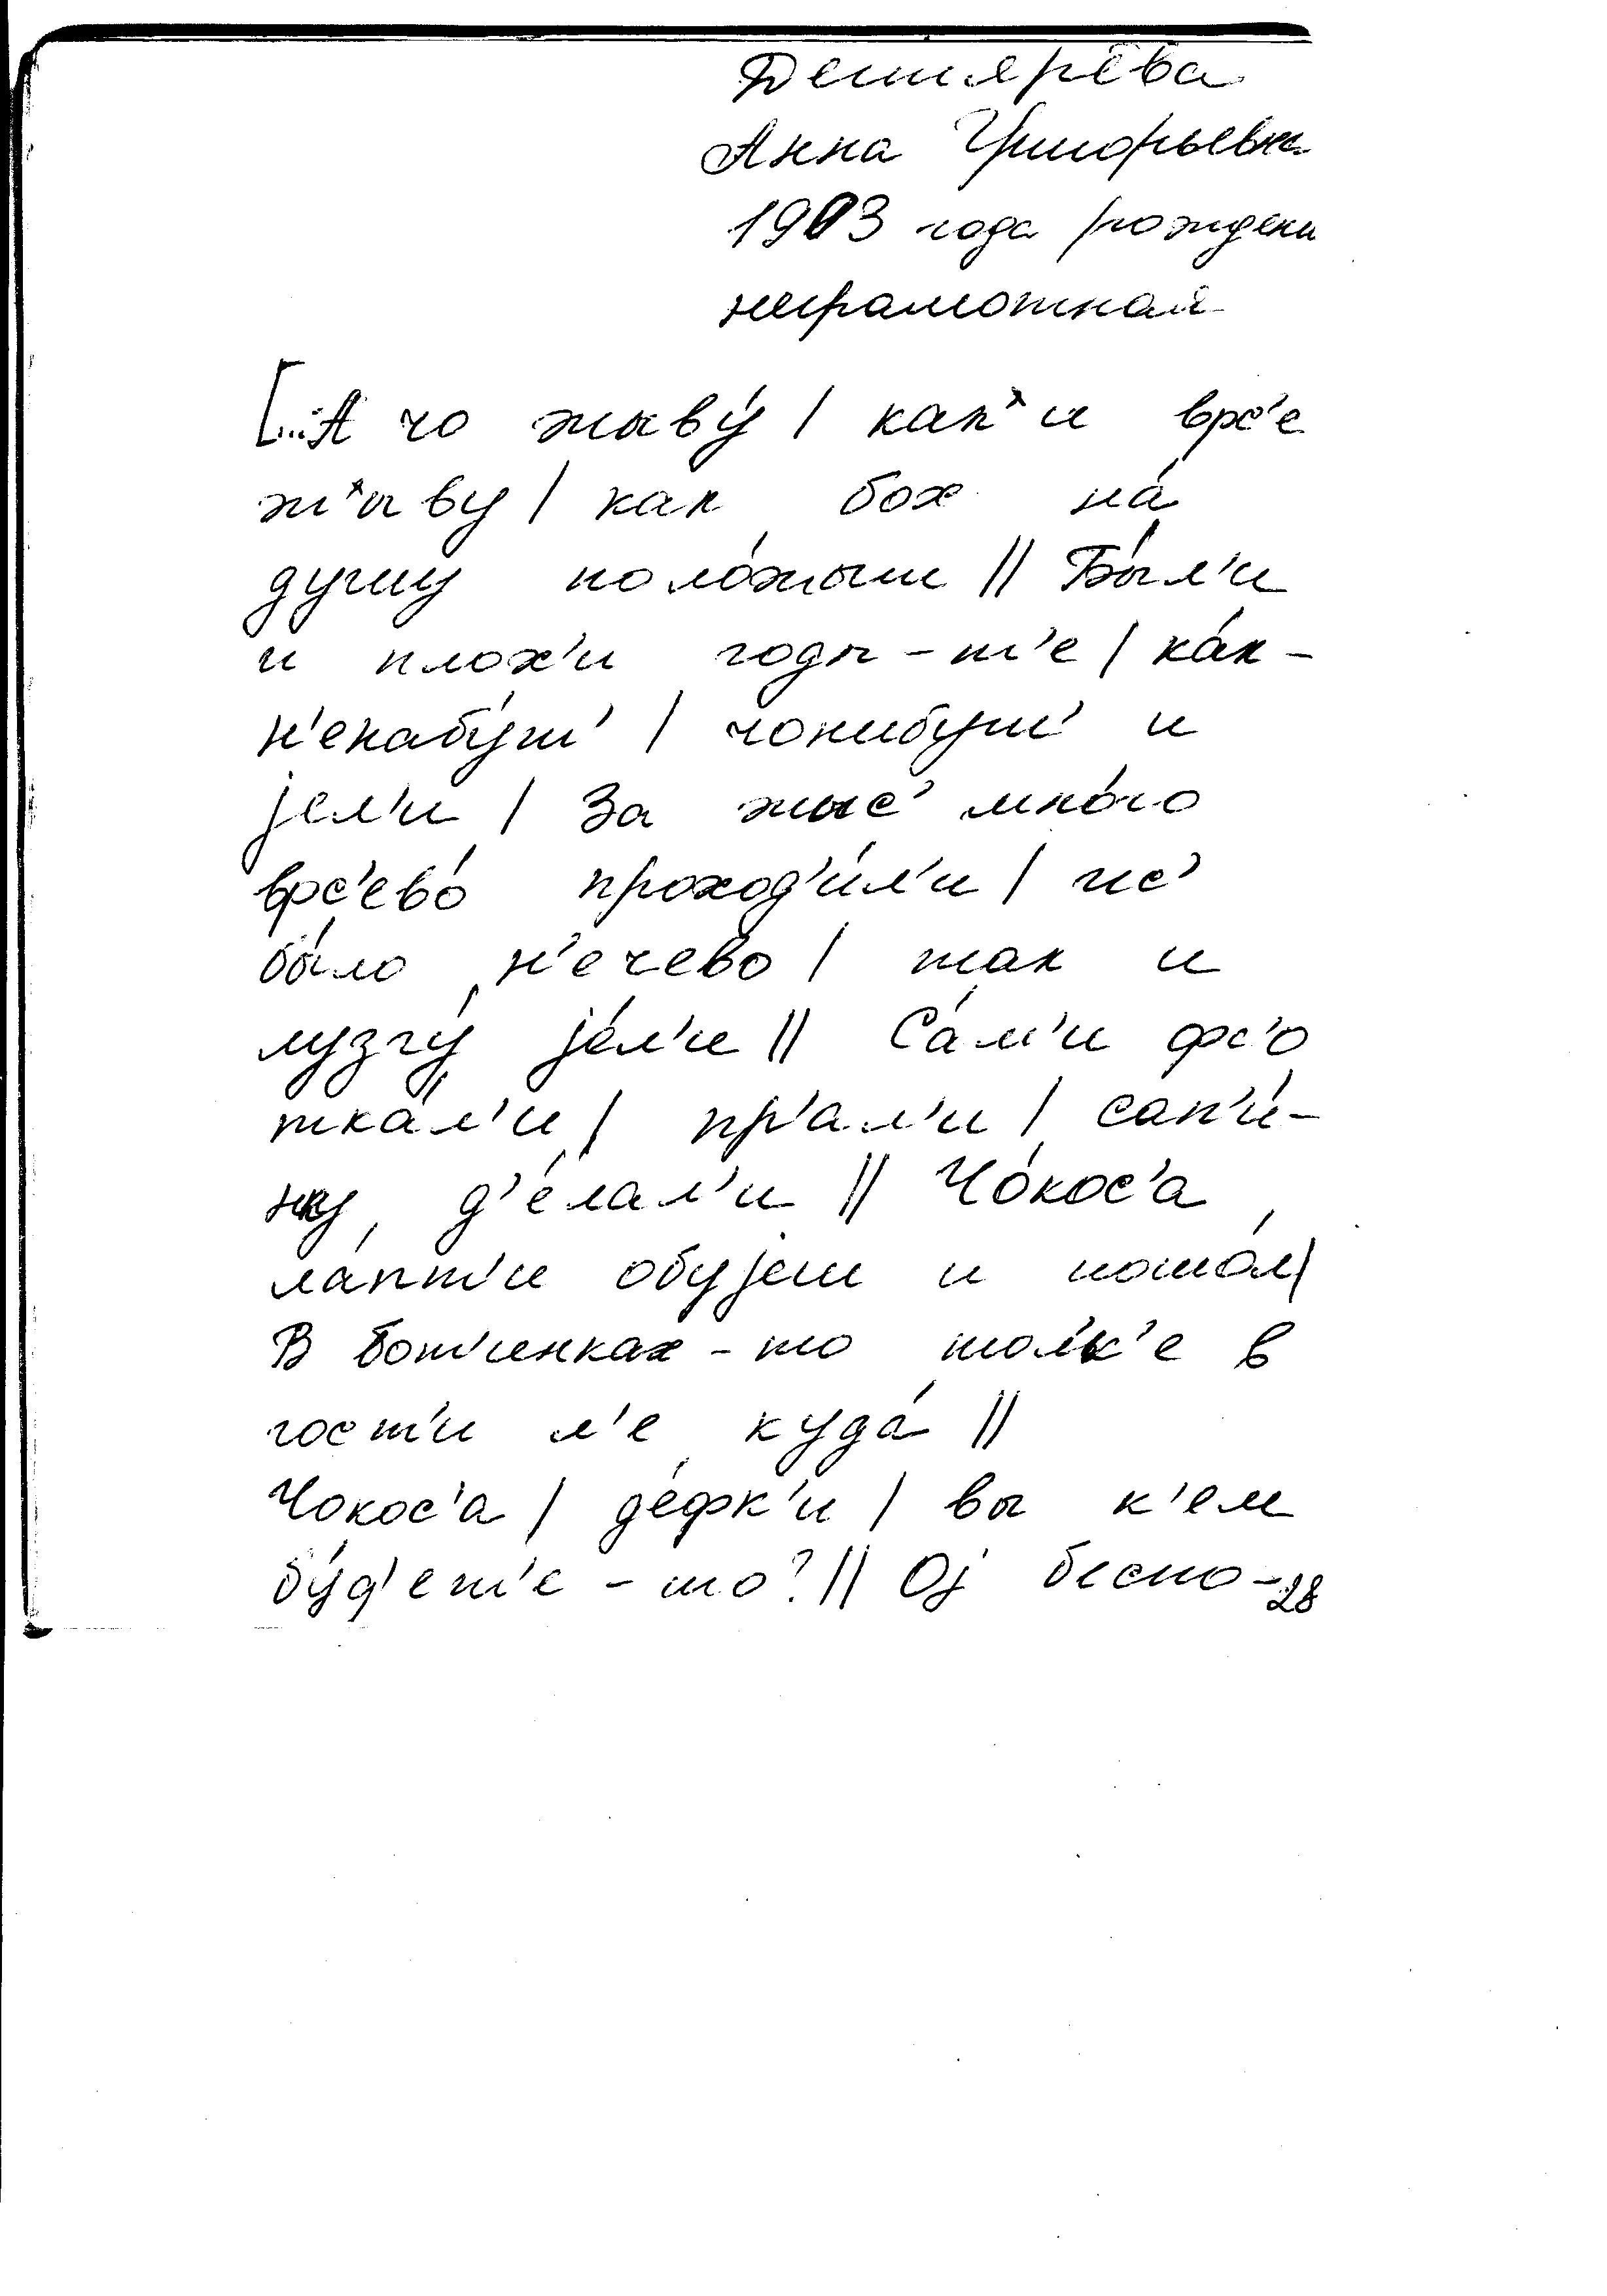 Дегтярёва
Анна Григорьевн
1903 года рождени
неграмотная
[...А чо жыву́ | как и вс'е
жыву | как бох на́
душу поло́жыт || Бы́л'и
и плох'и годы-т'е | ка́к-
н'енабу́т' | чонибут' и
јел'и | За жыс' мно́го
вс'ево́ проход'и́л'и | ис'
бы́ло н'ечево | так и
лузгу́ је́л'и || Са́м'и фс'о
тка́л'и | пр'ал'и | сап'и́-
ну д'е́лал'и || Чо́кос'а
ла́пт'и обујеш и пошо́л |
В бот'инках-то тол'к'е в
гост'и л'е куда́ ||
Чокос'а | де́фк'и | вы к'ем
бу́д'ет'е-то? || Ој беспо-
28